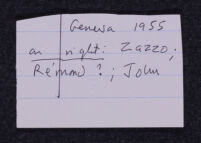 Geneva 1955
on right: Zazzo;
Rémond ?; John